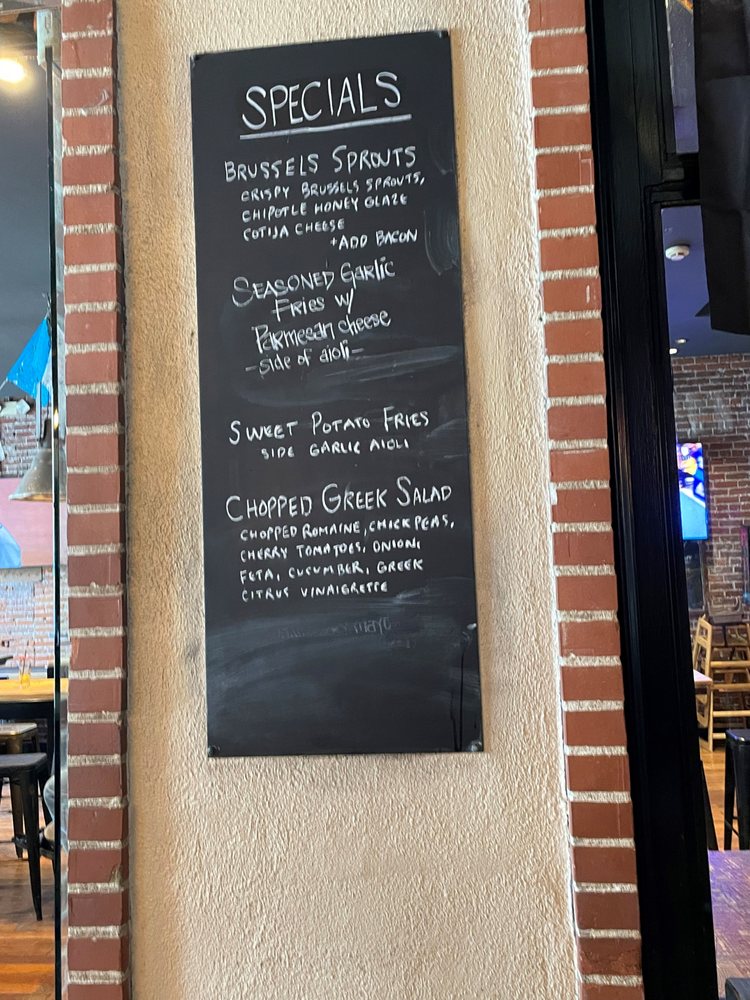 SPECIALS
BRUSSELS SPROUTS
CRISPY BRUSSELS SPROUTS,
CHIPOTLE HONEY GLAZE
COTIJA CHEESE
+ADD BACON
SEASONED GARLIC
FRIES W/
PARMESAN CHEESE
-side of aioli-
SWEET POTATO FRIES
SIDE GARLIC AIOLI
CHOPPED GREEK SALAD
CHOPPED ROMAINE, CHICKPEAS,
CHERRY TOMATOES, ONION,
FETA, CUCUMBER, GREEK
CITRUS VINAIGRETTE
mayo